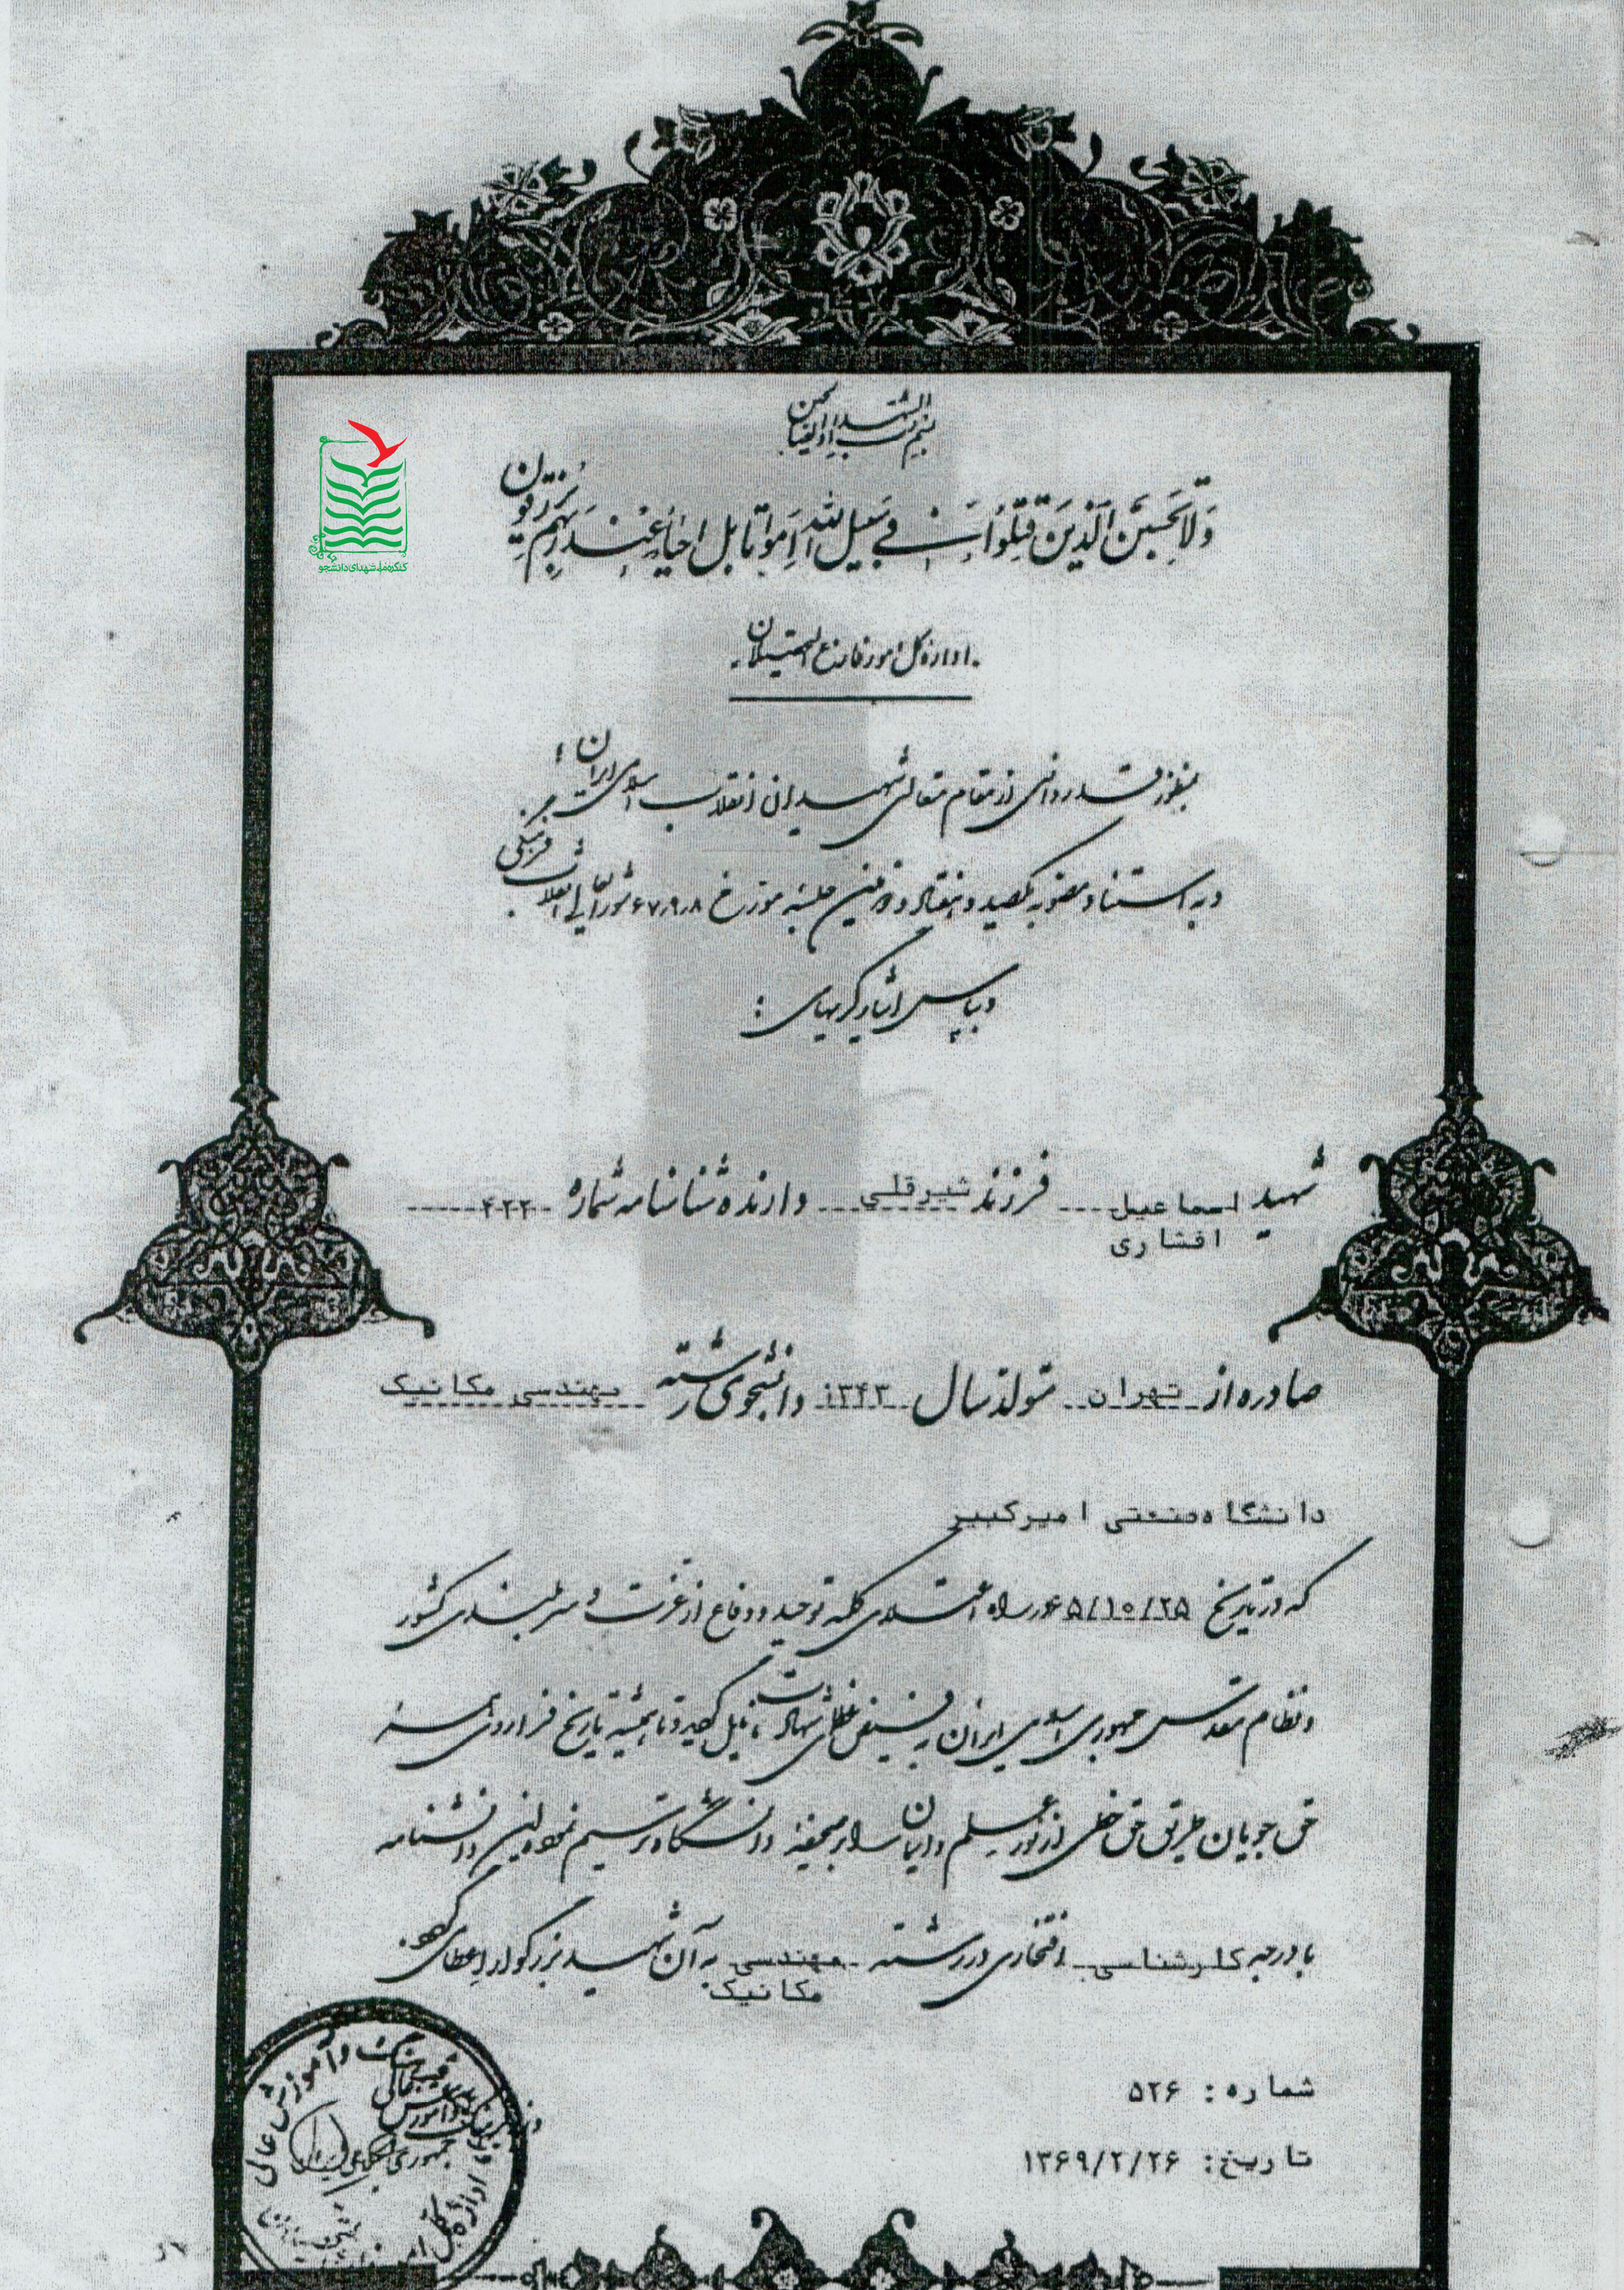 بسم رب الشهداء والصدیقین
وَلا تَحسَبَنَّ الَّذینَ قُتِلوُا فی سَبیلِ اللهِ اَمواتا بَل احیاءٌ عِندَ رَبِّهِم یُرزَقوُن
کنگره ملی شهدای دانشجو
اداره کل امور فارغ التحصیلان
بمنظور قدردانی از مقام متعالی شهیدان انقلاب اسلامی ایران
و به استناد مصوبه یکصد و هفتاد و دومین جلسه مورخ ۶۷٫۹٫۸ شورایعالی انقلاب فرهنگی
و بپاس ایثارگریهای :
شهید اسماعیل افشاری فرزند شیرقلی دارنده شناسنامه شماره ۴۲۲
صادره از تهران متولد سال ۱۳۴۳ دانشجوی رشته مهندسی مکانیک
دانشگاه صنعتی امیرکبیر
که در تاریخ ۶۵/۱۰/۲۵ در راه اعتلای کلمه توحید و دفاع از عزت و سربلندی کشور
و نظام مقدس جمهوری اسلامی ایران به فیض عظمای شهادت نایل گردید و تا همیشه تاریخ فراروی همه
حق جویان طریق حق خطی از نور علم و ایمان را بر صحیفه دانشگاه ترسیم نمود این دانشنامه
با درجه کارشناسی افتخاری در رشته مهندسی مکانیک به آن شهید بزرگوار اعطا می گردد.
شماره : ۵۲۶
تاریخ: ۱۳۶۹/۲/۲۶
فرهنگ و آموزش عالی
اداره کل